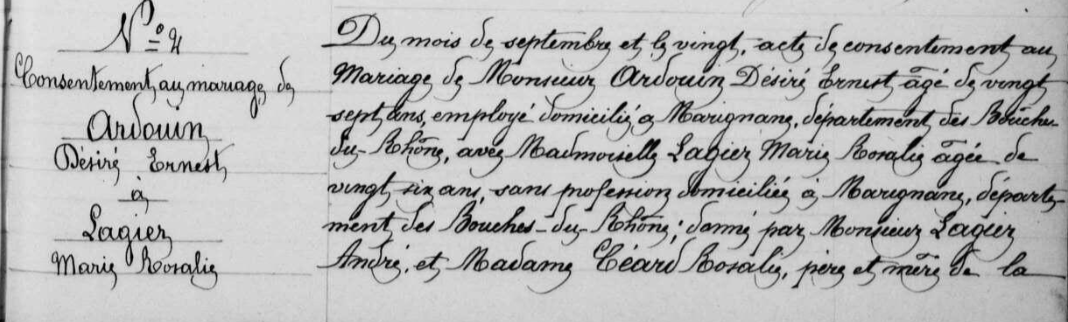 N° 4
Consentement au mariage de
Ardouin
Désiré Ernest
à
Lagier
Marie Rosalie
Du mois de septembre et le vingt, acte de consentement au
Mariage de Monsieur Ardouin Désiré Ernest âgé de vingt
sept ans, employé domicilié à Marignane, département des Bouches-
du-Rhône, avec Madmoiselle Lagier Marie Rosalie âgée de
vingt six ans, sans profession domiciliée à Marignane, départe-
ment des Bouches-du-Rhône; donné par Monsieur Lagier
André, et Madame Céard Rosalie, père et mère de la